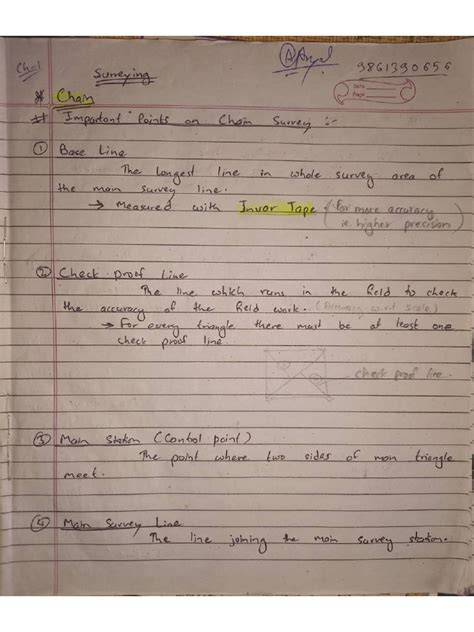 Ch-1
Surveying
9861390656
Date
Page
* Chain
# Important Points on Chain Survey :-
① Base Line
The Longest line in whole survey area of
the main survey line.
→ Measured with Invar Tape (for more accuracy
i.e. higher precision)
② Check proof Line
The line which runs in the field to check
the accuracy of the field work. (Accuracy w.r.t Scale)
→ For every triangle there must be at least one
check proof line.
check proof line.
③ Main Station (Control point)
The point where two sides of main triangle
meet.
④ Main Survey Line
The line joining the main survey station.